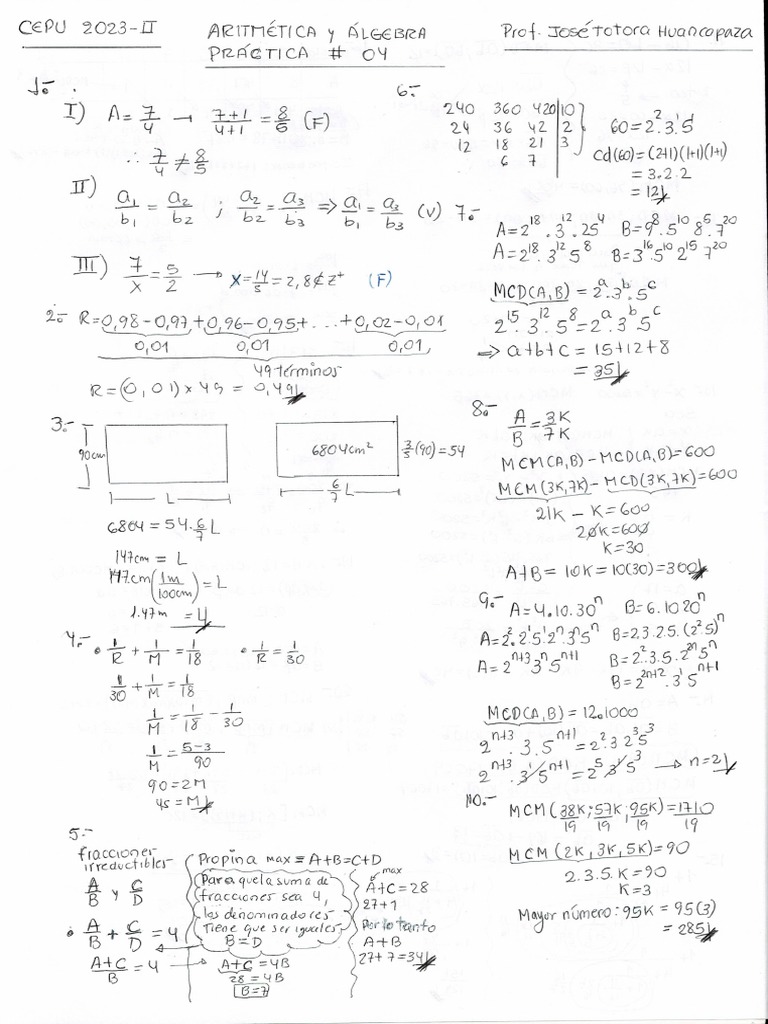 CEPU 2023-II
ARITMÉTICA y ÁLGEBRA
PRÁCTICA # 04
Prof. José Totora Huancapaza
1.-
I) A = 7/4 → (7+1)/(4+1) = 8/5 (F)
∴ 7/4 ≠ 8/5
II) a₁/b₁ = a₂/b₂ ; a₂/b₂ = a₃/b₃ ⇒ a₁/b₁ = a₃/b₃ (V)
III) 7/x = 5/2 → x = 14/5 = 2,8 ∉ Z⁺ (F)
2.- R = 0,98-0,97 + 0,96-0,95 + . . . + 0,02-0,01
0,01 0,01 0,01
49 términos
R = (0,01) × 49 = 0,49
3.-
90cm
L
6804cm²
3/5 (90) = 54
6/7 L
6804 = 54 · 6/7 L
147cm = L
147cm (1m/100cm) = L
1.47m = L
4.- • 1/R + 1/M = 1/18 • 1/R = 1/30
1/30 + 1/M = 1/18
1/M = 1/18 - 1/30
1/M = (5-3)/90
90 = 2M
45 = M
5.-
fracciones
irreductibles
A/B y C/D
• A/B + C/D = 4
(A+C)/B = 4
Propina max = A+B=C+D
Para que la suma de
fracciones sea 4,
los denominadores
Tiene que ser iguales
B = D
A+C = 4B
28 = 4B
B=7
max
A+C = 28
27+1
Por lo tanto
A+B
27+7 = 34
6.-
240 360 420 | 10
24 36 42 | 2
12 18 21 | 3
6 7
60 = 2².3¹.5¹
Cd(60) = (2+1)(1+1)(1+1)
= 3.2.2
= 12
7.-
A = 2¹⁸.3¹².25⁴ B = 9⁸.5¹⁰ 8⁵.7²⁰
A = 2¹⁸.3¹² 5⁸ B = 3¹⁶ 5¹⁰ 2¹⁵ 7²⁰
MCD(A,B) = 2ᵃ.3ᵇ.5ᶜ
2¹⁵.3¹².5⁸ = 2ᵃ.3ᵇ.5ᶜ
⇒ a+b+c = 15+12+8
= 35
8.-
A/B = 3K/7K
MCM(A,B) - MCD(A,B) = 600
MCM(3K,7K) - MCD(3K,7K) = 600
21K - K = 600
20K = 600
K = 30
A+B = 10K = 10(30) = 300
9.- A = 4.10.30ⁿ B = 6.10 20ⁿ
A = 2².2¹5¹.2ⁿ.3ⁿ.5ⁿ B = 2.3.2.5.(2².5)ⁿ
A = 2ⁿ⁺³ 3ⁿ 5ⁿ⁺¹ B = 2².3.5.2²ⁿ 5ⁿ
B = 2²ⁿ⁺².3¹ 5ⁿ⁺¹
MCD(A,B) = 12.1000
2ⁿ⁺³.3.5ⁿ⁺¹ = 2².3 2³5³
2ⁿ⁺³.3¹5ⁿ⁺¹ = 2⁵ 3¹5³ → n=2
10.-
MCM (38K/19 ; 57K/19 ; 95K/19) = 1710/19
MCM (2K, 3K, 5K) = 90
2.3.5.K = 90
K = 3
Mayor número: 95K = 95(3)
= 285